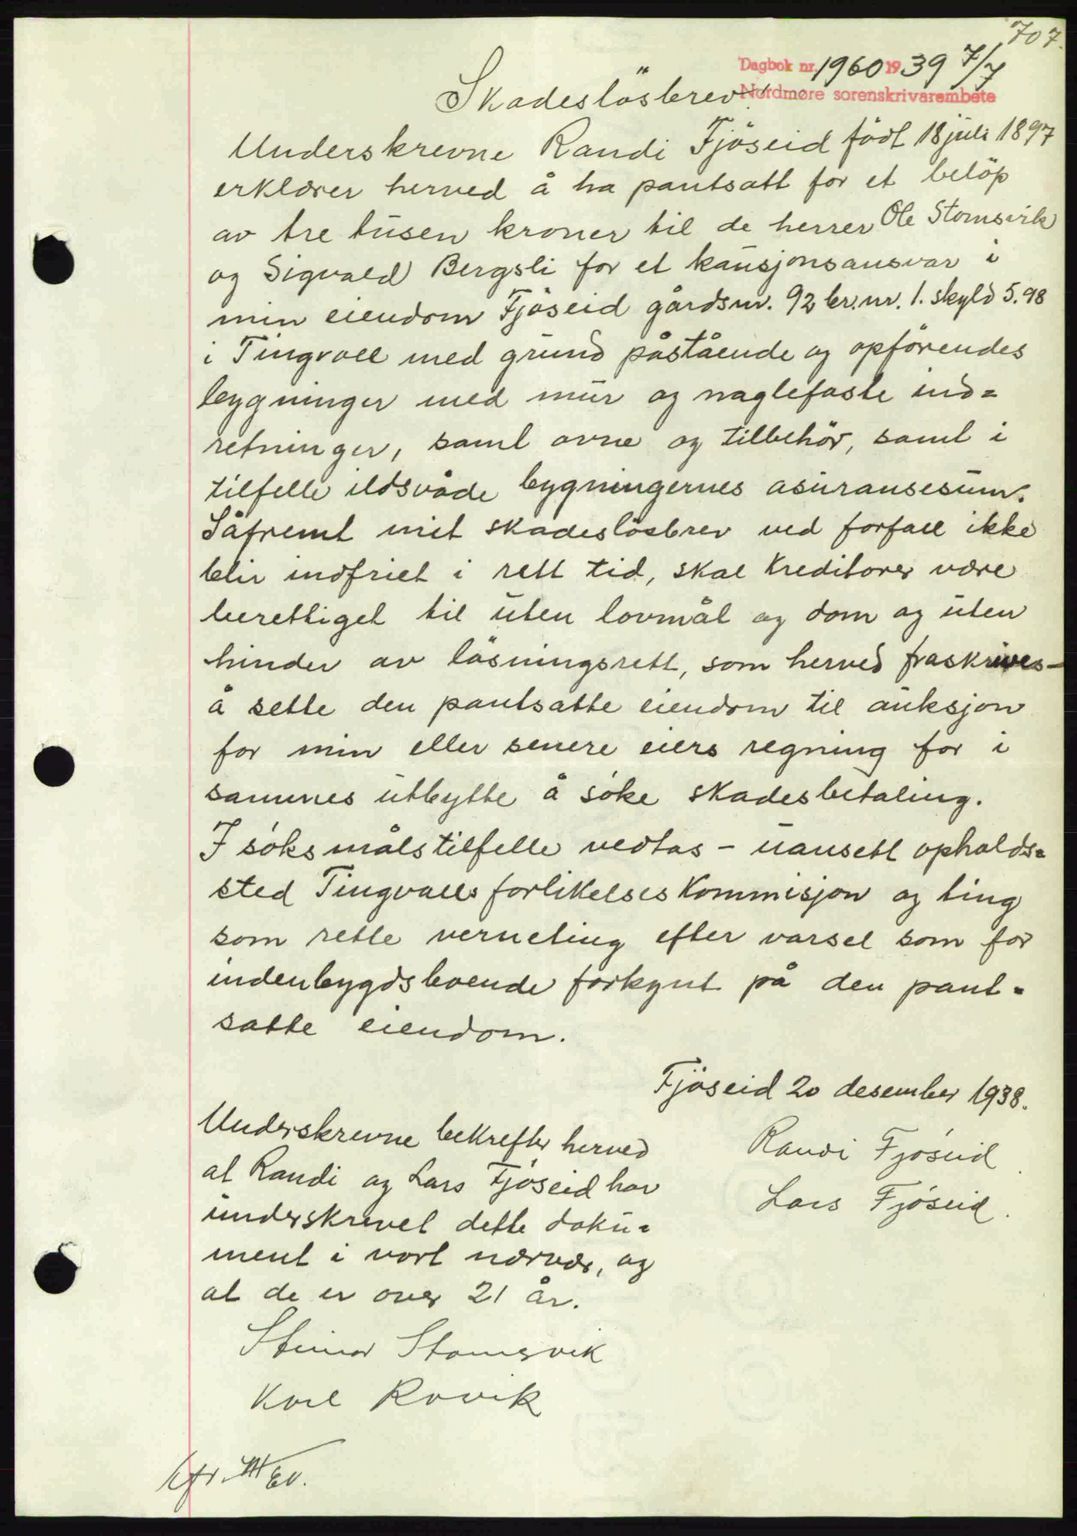 707.
Dagbok nr. 1960 1939 7/7
Nordmøre sorenskrivarembete
Skadeslösbrev.
Underskrevne Randi Fjöseid födt 18 juli 1897
erklærer herved å ha pantsatt for et belöp
av tre tusen kroner til de herrer Ole Stomsvik
og Sigvald Bergsli for et kausjonsansvar i
min eiendom Fjöseid gårdsnr. 92 br.nr. 1. skyld 5.98
i Tingvoll med grund påstående og opförendes
bygninger med mur og naglefaste ind=
retninger, samt ovne og tilbehör, samt i
tilfelle ildsvåde bygningernes asuransesum.
Såfremt mit skadeslösbrev ved forfall ikke
blir indfriet i rett tid, skal Kreditorer være
berettiget til uten lovmål og dom og uten
hinder av lösningsrett, som herved fraskrives-
å sette den pantsatte eiendom til auksjon
for min eller senere eiers regning for i
sammes utbytte å söke skadesbetaling.
I söksmålstilfelle vedtas - uansett opholds=
sted Tingvolls forlikelses Kommisjon og ting
som rette verneting efter varsel som for
indenbygdsboende forkynt på den pant-
satte eiendom.
Fjöseid 20 desember 1938.
Randi Fjöseid.
Lars Fjöseid.
Underskrevne bekrefter herved
at Randi og Lars Fjöseid har
underskrevet dette doku=
ment i vort nærvær, og
at de er over 21 år.
Steinar Stomsvik
Karl Rovik